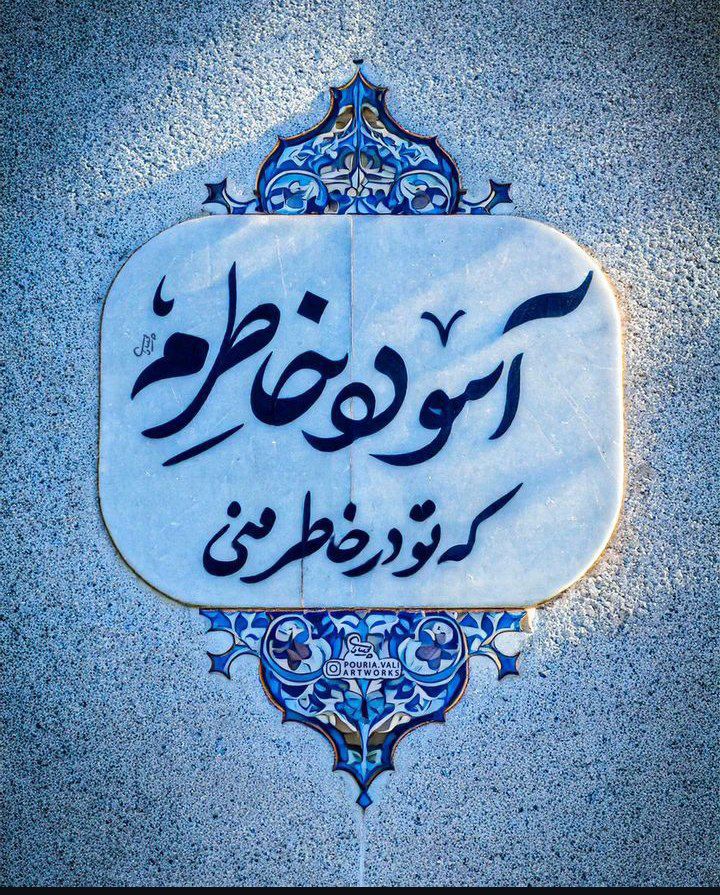 آسوده خاطرم
که تو در خاطر منی
POURIA.VALI
ARTWORKS